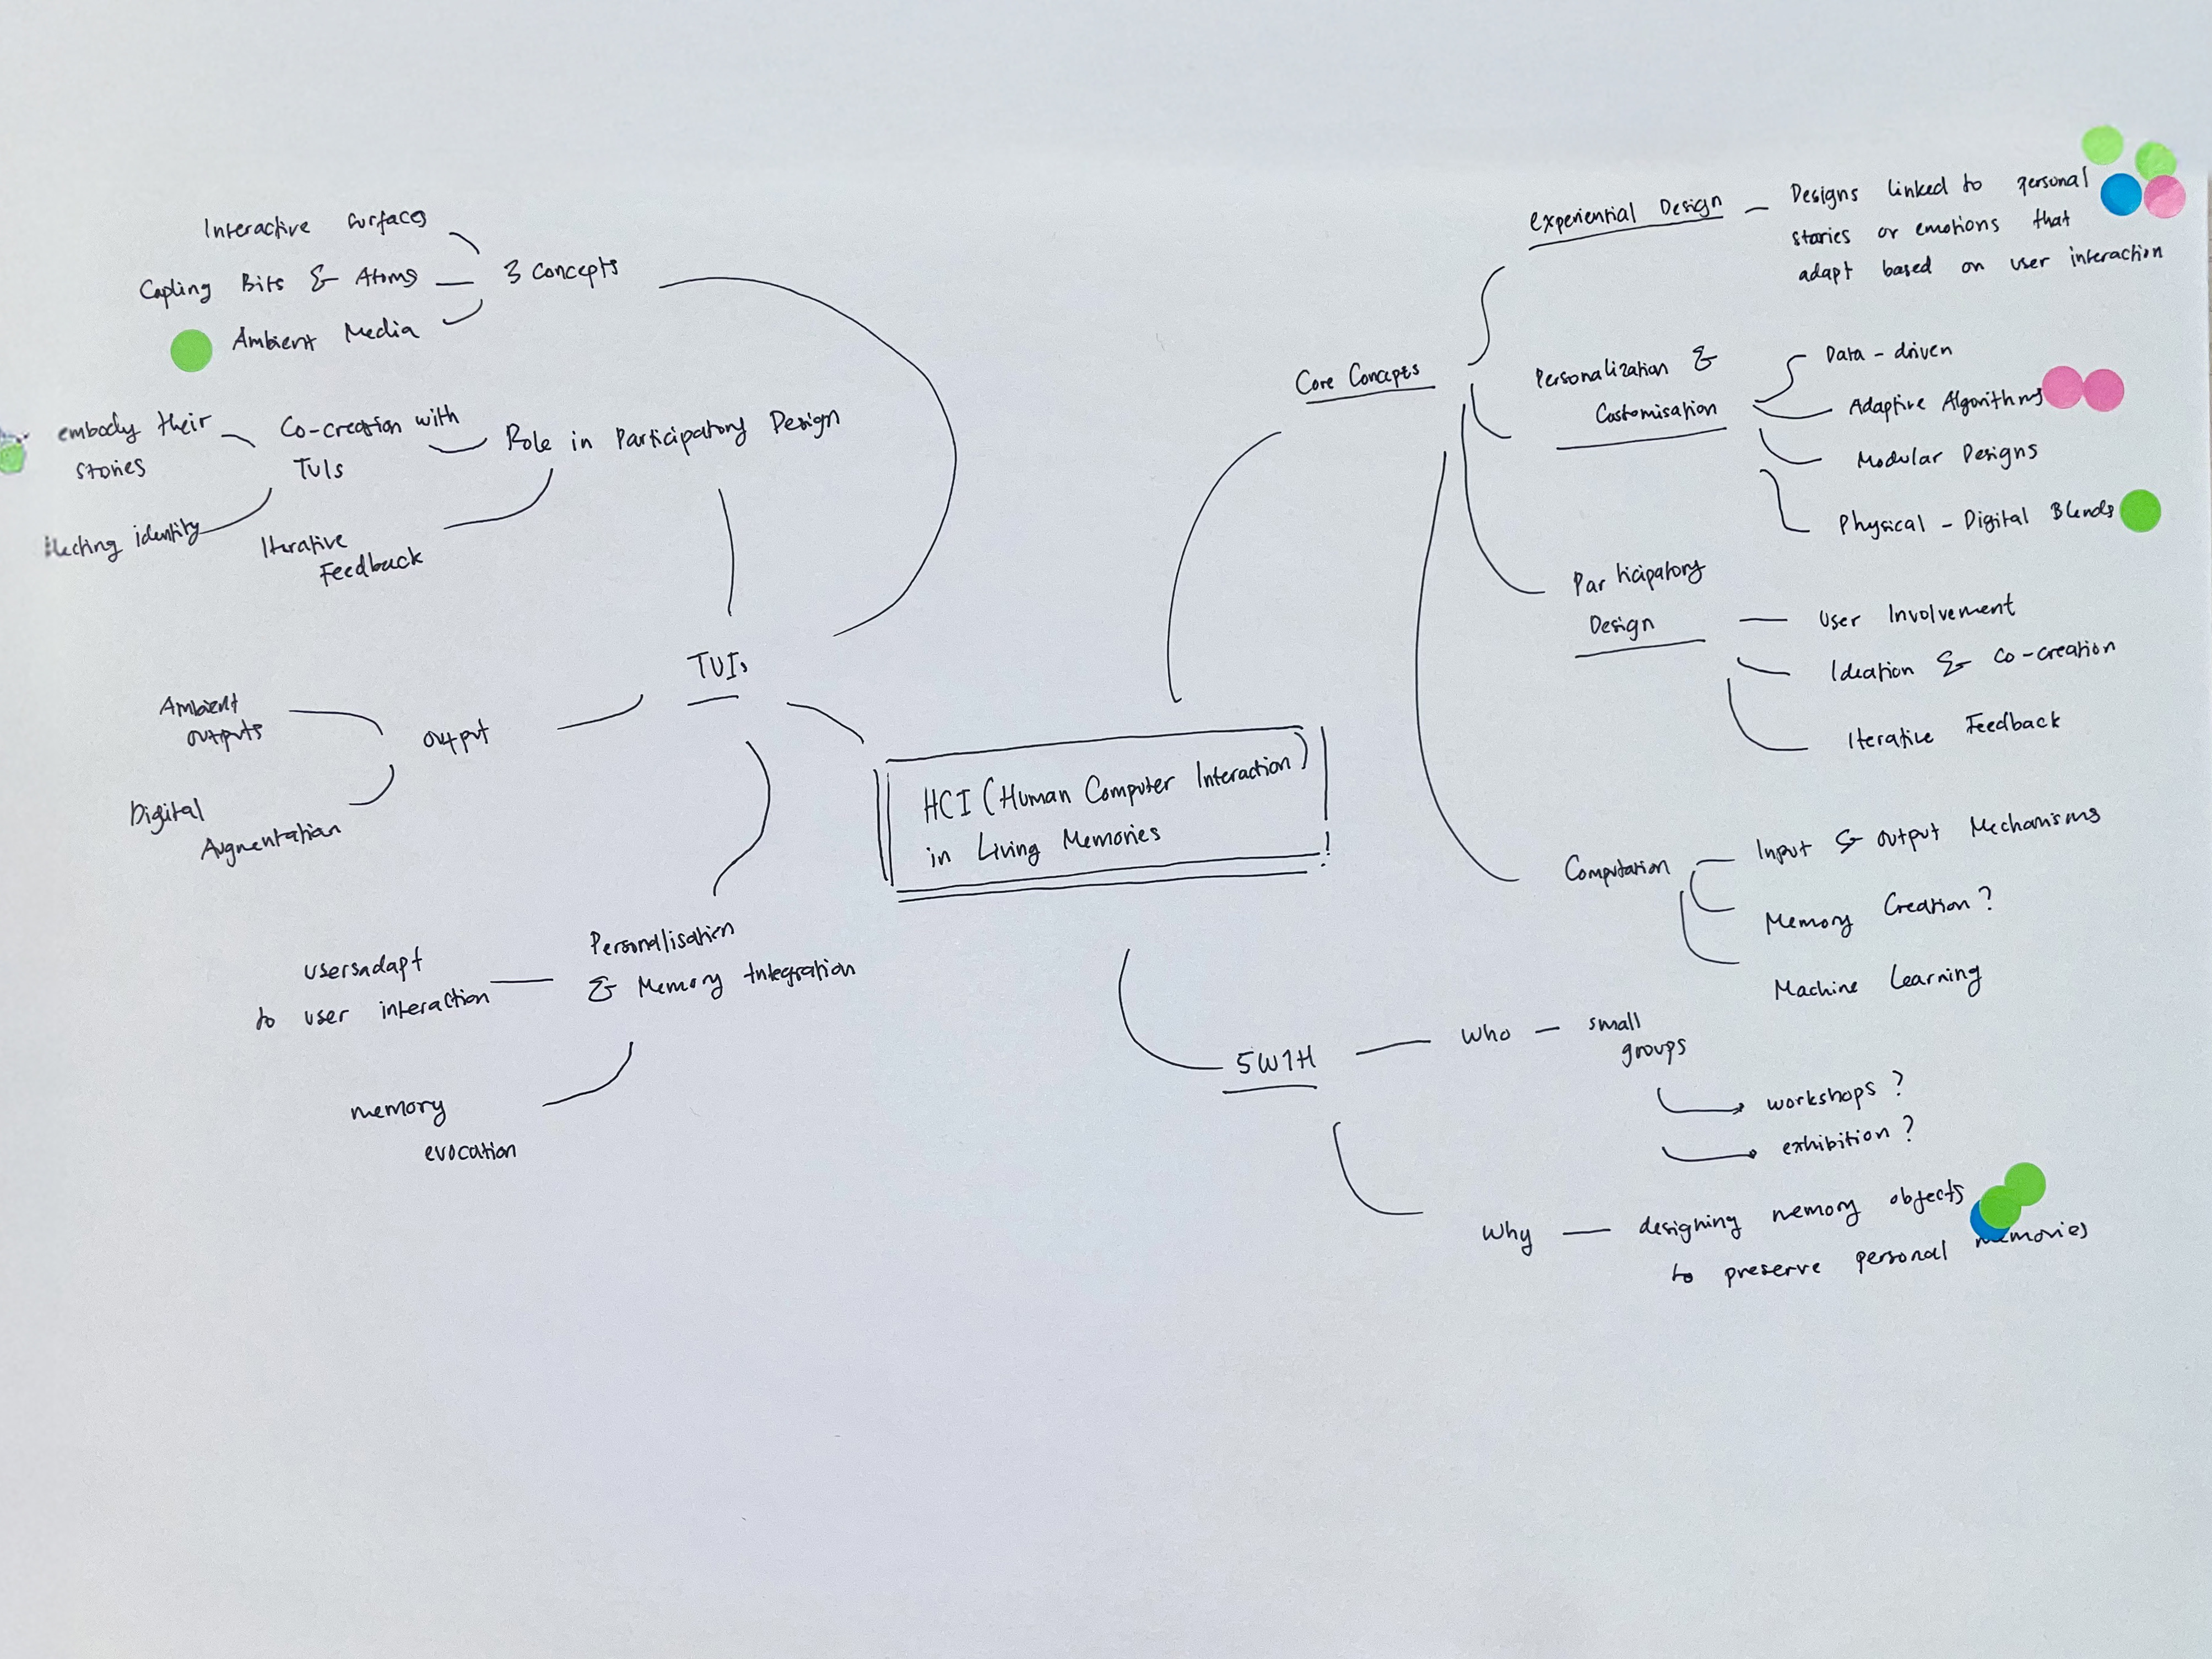 Interactive surfaces
Copling Bits & Atoms
Ambient Media
3 concepts
embody their
stories
Co-creation with
TUIs
Role in Participatory Design
identity
Iterative
Feedback
TUIs
Ambient
outputs
output
Digital
Augmentation
Personalisation
& Memory Integration
usersadapt
to user interaction
memory
evocation
HCI (Human Computer Interaction)
in Living Memories
!
Core Concepts
experiential Design
Designs linked to personal
stories or emotions that
adapt based on user interaction
Personalization &
Customisation
Data - driven
Adaptive Algorithms
Modular Designs
Physical - Digital Blends
Participatory
Design
User Involvement
Ideation & co-creation
Iterative Feedback
Computation
Input & output Mechanisms
Memory Creation?
Machine Learning
5W1H
Who - small
groups
workshops?
exhibition?
Why - designing memory objects
to preserve personal memories